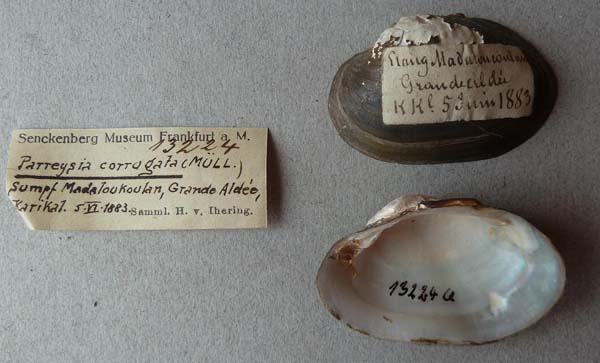 Senckenberg Museum Frankfurt a. M.
13224
Parreysia corrugata (MÜLL.)
Sumpf Madaloukoulan, Grande Aldée,
Karikal. 5.VI.1883. Samml. H. v. Ihering.
Etang Madaloucoulan
Grande aldée
KKl 5 Juin 1883
13224 a